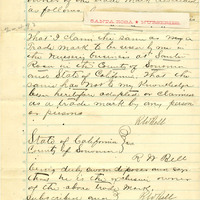 as follows:
SANTA ROSA NURSERIES
That I claim the same as my
trade mark to be used by me in
the Nursery business at Santa
Rosa in the County of Sonoma
and State of California. That the
same has not to my knowledge
been heretofore adopted or claimed
as a trade mark by any person
or persons
R W Bell
State of California } ss
County of Sonoma
R. W. Bell
being duly sworn deposes and says
that he is the owner
of the above trade mark.
R W Bell